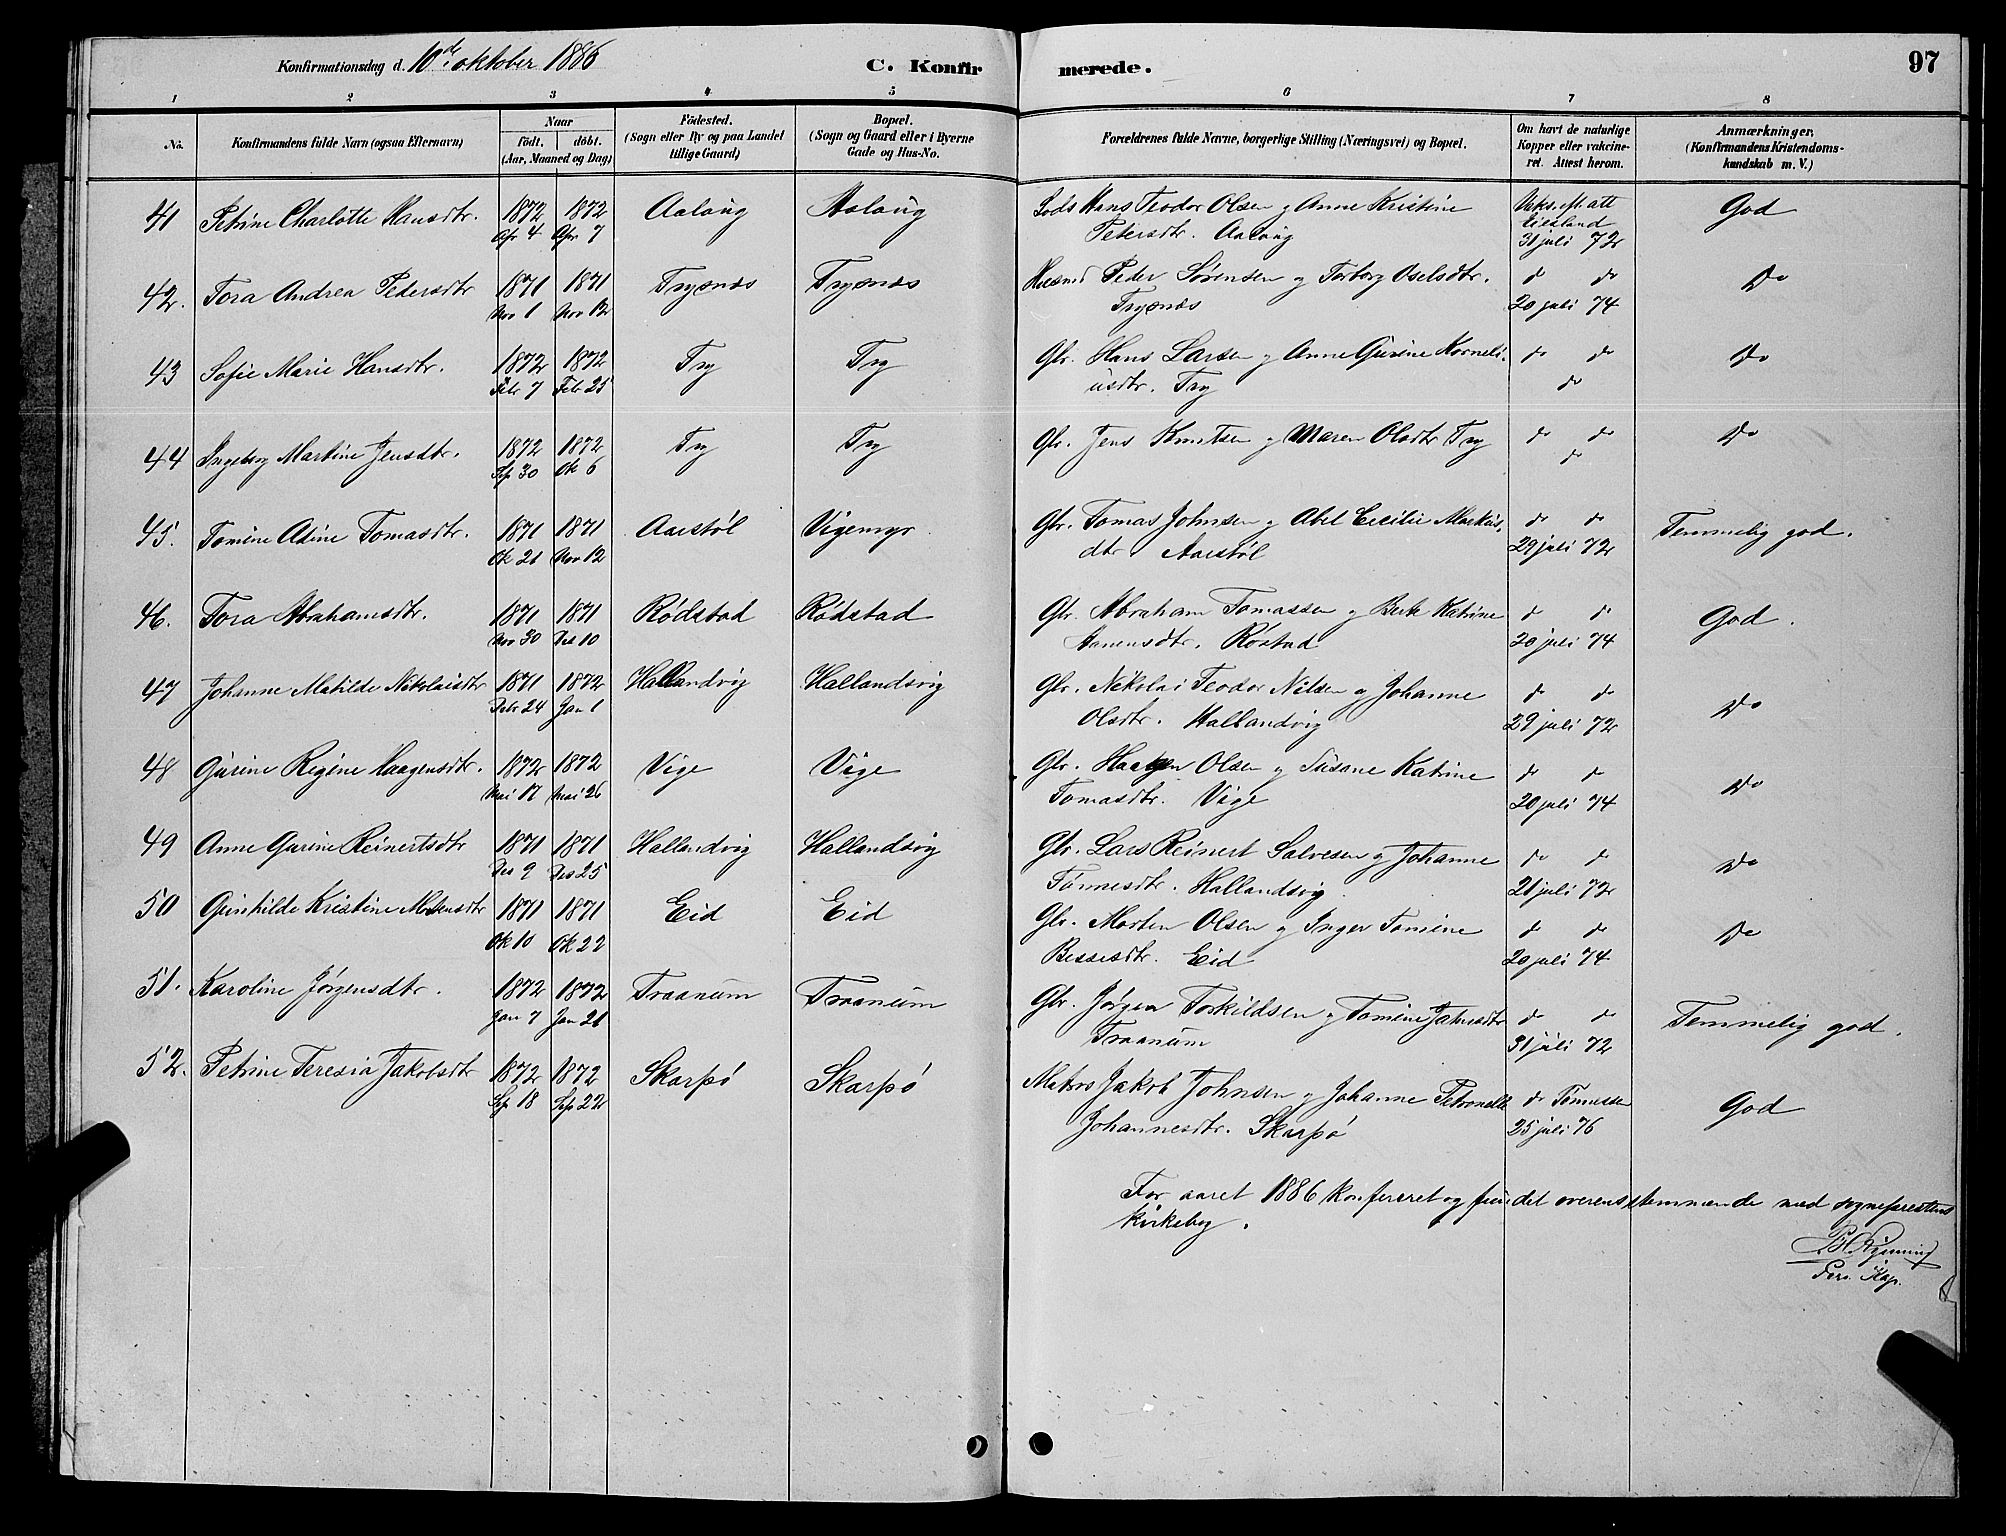 Konfirmationsdag d. 10de oktober 1886 C. Konfirmerede. 97
1 2 3 4 5 6 7 8
No. Konfirmandens fulde Navn (ogsaa Efternavn) Naar født. døbt. (Aar, Maaned og Dag) Fødested. (Sogn eller By og paa Landet tillige Gaard) Bopæl. (Sogn og Gaard eller i Byerne Gade og Hus-No. Forældrenes fulde Navne, borgerlige Stilling (Næringsvei) og Bopæl. Om havt de naturlige Kopper eller vakcineret. Attest herom. Anmærkninger. (Konfirmandens Kristendomskundskab m. V.)
41 Petrine Charlotte Hansdtr. 1872 1872 Aalaug Aalaug Lods Hans Teodor Olsen og Anne Kristine Vaks. M att God
Apr 4 Apr 7 Petersdtr. Aalaug Eiesland
31 juli 72
42. Tora Andrea Pedersdtr 1871 1871 Trysnæs Trysnæs Husmd Peder Sørensen og Torborg Oselsdtr. do do Do
Nov 1 Nov 12 Trysnæs 20 juli 74
43 Sofie Marie Hansdtr. 1872 1872 Try Try Gbr. Hans Larsen og Anne Gurine Korneli- do do Do
Febr 7 Febr 25 usdtr. Try do
44 Ingeborg Martine Jensdtr. 1872 1872 Try Try Gbr. Jens Knutsen og Maren Olsdtr Try do do Do
Sp 30 Ok 6 do
45. Tomine Adine Tomasdtr. 1871 1871 Aarstøl Vigemyr Gbr. Tomas Johnsen og Abel Cecilie Markus- do do Temmelig god.
Ok 21 Nov 12 dtr Aarstøl 29 juli 72
46. Tora Abrahamsdtr. 1871 1871 Rødstad Rødstad Gbr. Abraham Tomassen og Berte Katrine do do God.
Nov 30 Des 10 Hanensdtr. Røstad 20 juli 74
47 Johanne Matilde Nikolaisdtr 1871 1872 Hallandvig Hallandsvig Gbr. Nikolai Teodor Nilsen og Johanne do do Do
Febr 24 Jan 1 Olsdtr. Hallandvig 29 juli 72
48 Gurine Regine Haagensdtr. 1872 1872 Vige Vige Gbr. Haagen Olsen og Susane Katrine do do Do
Mai 17 Mai 26 Tomasdtr. Vige 20 juli 74
49 Anne Gurine Reinertsdtr 1871 1871 Hallandvig Hallandsvig Gbr. Lars Reinert Salvesen og Johanne do do Do
Des 9 Des 25 Tønnesdtr. Hallandsvig 21 juli 72
50 Gunhilde Kristine Motensdtr 1871 1871 Eid Eid Gbr. Morten Olsen og Inger Tomine do do Do
Ok 10 Ok 22 Bessesdtr. Eid 20 juli 74
51. Karoline Jørgensdtr. 1872 1872 Traanum Traanum Gbr. Jørgen Torkildsen og Tomine Jahnsdtr do do Temmelig god.
Jan 7 Jan 21 Traanum 31 juli 72
52. Petrine Teresia Jakobsdtr 1872 1872 Skarpø Skarpø Matros Jakob Johnsen og Johanne Petronelle do Tønnessen God
Sep 18 Sep 22 Johannesdtr. Skarpø 25 juli 76
For aaret 1886 konfereret og fundet overensstemmende med sogneprestens
kirkebog.
Pers. Kap.